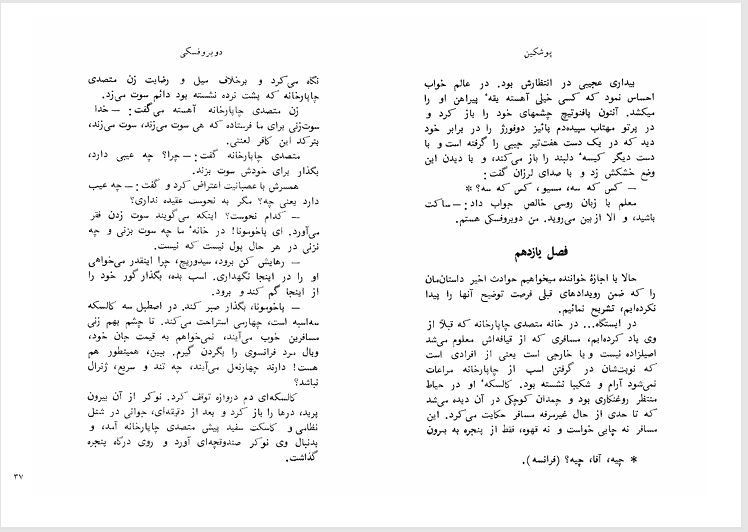 پوشکین
بیداری عجیبی در انتظارش بود. در عالم خواب
احساس نمود که کسی خیلی آهسته یقهٔ پیراهن او را
میکشد. آنتون پافنوتیچ چشمهای خود را باز کرد و
در پرتو مهتاب سپیده‌دم پائیز دوفورژ را در برابر خود
دید که در یک دست هفت‌تیر جیبی را گرفته است و با
دست دیگر کیسهٔ دلبند را باز می‌کند، و با دیدن این
وضع خشکش زد و با صدای لرزان گفت:
— کس که سه، مسیو، کس که سه؟ *
معلم با زبان روسی خالص جواب داد: — ساکت
باشید، و الا از بین می‌روید. من دوبروفسکی هستم.
فصل یازدهم
حالا با اجازهٔ خواننده میخواهیم حوادث اخیر داستان‌مان
را که ضمن رویدادهای قبلی فرصت توضیح آنها را پیدا
نکرده‌ایم، تشریح نمائیم.
در ایستگاه... در خانه متصدی چاپارخانه که قبلاً از
وی یاد کرده‌ایم، مسافری که از قیافه‌اش معلوم می‌شد
اصیلزاده نیست و یا خارجی است یعنی از افرادی است
که نوبت‌شان در گرفتن اسب از چاپارخانه مراعات
نمی‌شود آرام و شکیبا نشسته بود. کالسکهٔ او در حیاط
منتظر روغنکاری بود و چمدان کوچکی در آن دیده می‌شد
که تا حدی از حال غیرمرفه مسافر حکایت می‌کرد. این
مسافر نه چایی خواست و نه قهوه، فقط از پنجره به بیرون
* چیه، آقا، چیه؟ (فرانسه).
دوبروفسکی
نگاه می‌کرد و برخلاف میل و رضایت زن متصدی
چاپارخانه که پشت نرده نشسته بود دائم سوت می‌زد.
زن متصدی چاپارخانه آهسته می‌گفت: — خدا
سوت‌زنی برای ما فرستاده که هی سوت می‌زند، سوت می‌زند،
بترکد این کافر لعنتی.
متصدی چاپارخانه گفت: — چرا؟ چه عیبی دارد،
بگذار برای خودش سوت بزند.
همسرش با عصبانیت اعتراض کرد و گفت: — چه عیب
دارد یعنی چه؟ مگر به نحوست عقیده نداری؟
— کدام نحوست؟ اینکه می‌گویند سوت زدن فقر
می‌آورد. ای پاخومونا! در خانهٔ ما چه سوت بزنی و چه
نزنی در هر حال پول نیست که نیست.
— رهایش کن برود، سیدوریچ، چرا اینقدر می‌خواهی
او را در اینجا نگهداری. اسب بده، بگذار گور خود را
از اینجا گم کند و برود.
— پاخومونا، بگذار صبر کند. در اصطبل سه کالسکه
سه‌اسبه است، چهارمی استراحت می‌کند. تا چشم بهم زنی
مسافرین خوب می‌آیند، نمی‌خواهم به قیمت جان خود،
وبال سرد فرانسوی را بگردن گیرم. ببین، همینطور هم
هست! دارند چهارنعل می‌آیند، چه تند و سریع، ژنرال
نباشد؟
کالسکه‌ای دم دروازه توقف کرد. نوکر از آن بیرون
پرید، درها را باز کرد و بعد از دقیقه‌ای، جوانی در شنل
نظامی و کاسکت سفید پیش متصدی چاپارخانه آمد، و
بدنبال وی نوکر صندوقچه‌ای آورد و روی درگاه پنجره
گذاشت.
۳۷